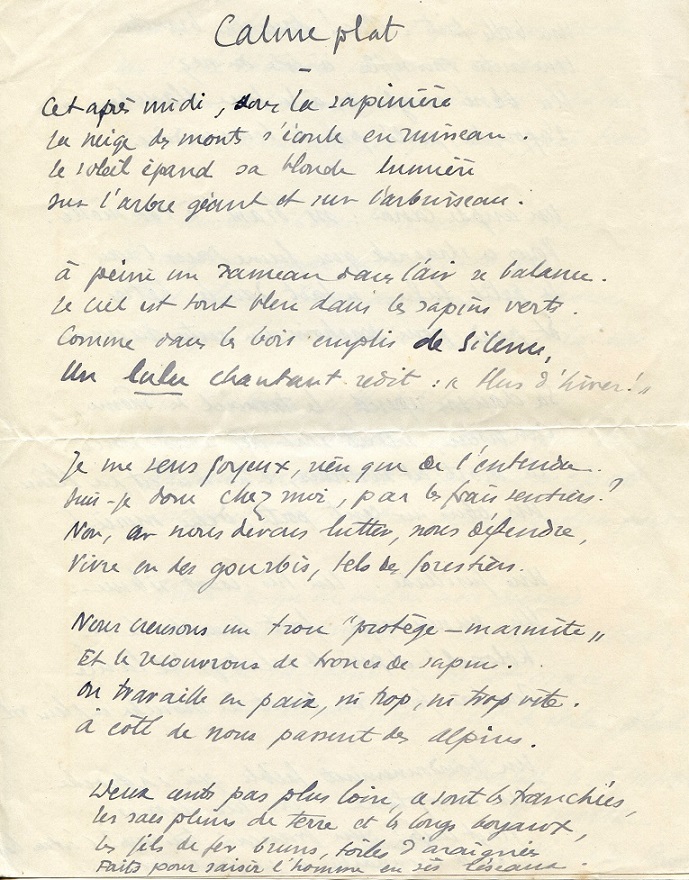 Calme plat
Cet après midi, dans la sapinière
La neige des monts s'écoule en ruisseau.
Le soleil épand sa blonde lumière
Sur l'arbre géant et sur l'arbuisseau.
à peine un rameau dans l'air se balance.
Le ciel est tout bleu dans les sapins verts.
Comme dans les bois emplis de Silence,
Un lulu chantant redit : « Plus d'hiver! »
Je me sens joyeux, rien que de l'entendre.
Suis-je donc chez moi, par les frais sentiers?
Non, car nous devons lutter, nous défendre,
Vivre en des gourbis, tels des forestiers.
Nous creusons un trou "protège-marmite"
Et le recouvrons de troncs de sapin.
On travaille en paix, ni trop, ni trop vite.
à côté de nous passent des alpins.
Deux cents pas plus loin, ce sont les tranchées,
Les sacs pleins de terre et les longs boyaux,
Les fils de fer bruns, toiles d'araignées
Faits pour saisir l'homme en ses réseaux.